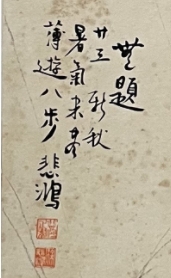 無題
廿 新秋
暑氣未盡
薄遊八步 悲鴻